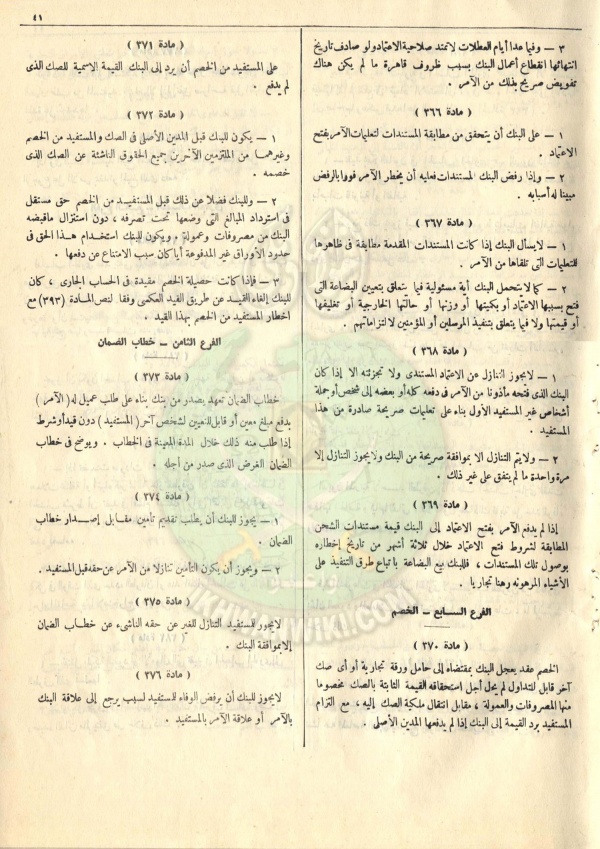 ٤١
٣ — وفيما عدا أيام العطلات لا تمتد صلاحية الاعتماد ولو صادف تاريخ
انتهائها انقطاع أعمال البنك بسبب ظروف قاهرة ما لم يكن هناك
تفويض صريح بذلك من الآمر .
( مادة ٣٦٦ )
١ — على البنك أن يتحقق من مطابقة المستندات لتعليمات الآمر بفتح
الاعتماد .
٢ — وإذا رفض البنك المستندات فعليه أن يخطر الآمر فورا بالرفض
مبينا له أسبابه .
( مادة ٣٦٧ )
١ — لا يسأل البنك إذا كانت المستندات المقدمة مطابقة فى ظاهرها
للتعليمات التى تلقاها من الآمر .
٢ — كما لا يتحمل البنك أية مسئولية فيما يتعلق بتعيين البضاعة التى
فتح بسببها الاعتماد أو بكيتها أو وزنها أو حالتها الخارجية أو تغليفها
أو قيمتها ولا فيما يتعلق بتنفيذ المرسلين أو المؤمنين لالتزاماتهم .
( مادة ٣٦٨ )
١ — لا يجوز التنازل عن الاعتماد المستندى ولا تجزئته الا إذا كان
البنك الذى فتحه مأذونا من الآمر فى دفعه كله أو بعضه إلى شخص أو جملة
أشخاص غير المستفيد الأول بناء على تعليمات صريحة صادرة من هذا
المستفيد .
٢ — ولا يتم التنازل الا بموافقة صريحة من البنك ولا يجوز التنازل إلا
مرة واحدة ما لم يتفق على غير ذلك .
( مادة ٣٦٩ )
إذا لم يدفع الآمر بفتح الاعتماد إلى البنك قيمة مستندات الشحن
المطابقة لشروط فتح الاعتماد خلال ثلاثة أشهر من تاريخ إخطاره
بوصول تلك المستندات ، فللبنك بيع البضاعة باتباع طرق التنفيذ على
الأشياء المرهونه رهنا تجاريا .
الفرع السابع — الخصم
( مادة ٣٧٠ )
الخصم عقد يعجل البنك بمقتضاه إلى حامل ورقة تجارية أو أى صك
آخر قابل للتداول لم يحل أجل استحقاقه القيمة الثابتة بالصك مخصوما
منها المصروفات والعمولة ، مقابل انتقال ملكية الصك إليه ، مع التزام
المستفيد برد القيمة إلى البنك إذا لم يدفعها المدين الأصلى .
( مادة ٣٧١ )
على المستفيد من الخصم أن يرد إلى البنك القيمة الاسمية للصك الذى
لم يدفع .
( مادة ٣٧٢ )
١ — يكون للبنك قبل المدين الأصلى فى الصك والمستفيد من الخصم
وغيرهما من الملتزمين الآخرين جميع الحقوق الناشئة عن الصك الذى
خصمه .
٢ — وللبنك فضلا عن ذلك قبل المستفيد من الخصم حق مستقل
فى استرداد المبالغ التى وضعها تحت تصرفه ، دون استنزال ماقبضه
البنك من مصروفات وعمولة . ويكون للبنك استخدام هذا الحق فى
حدود الأوراق غير المدفوعة أيا كان سبب الامتناع عن دفعها .
٣ — فإذا كانت حصيلة الخصم مقيدة فى الحساب الجارى ، كان
للبنك إلغاء القيد عن طريق القيد العكسى وفقا لنص المادة (٣٩٣) مع
اخطار المستفيد من الخصم بهذا القيد .
الفرع الثامن — خطاب الضمان
( مادة ٣٧٣ )
خطاب الضمان تعهد يصدر من بنك بناء على طلب عميل له ( الآمر )
بدفع مبلغ معين أو قابل للتعيين لشخص آخر ( المستفيد ) دون قيد أو شرط
إذا طلب منه ذلك خلال المدة المبينة فى الخطاب . ويوضح فى خطاب
الضمان الغرض الذى صدر من أجله .
( مادة ٣٧٤ )
١ — يجوز للبنك أن يطلب تقديم تأمين مقابل إصدار خطاب
الضمان .
٢ — ويجوز أن يكون التأمين تنازلا من الآمر عن حقه قبل المستفيد .
( مادة ٣٧٥ )
لا يجوز للمستفيد التنازل للغير عن حقه الناشىء عن خطاب الضمان
إلا بموافقة البنك .
( مادة ٣٧٦ )
لا يجوز للبنك أن يرفض الوفاء للمستفيد لسبب يرجع إلى علاقة البنك
بالآمر أو علاقة الآمر بالمستفيد .
IKHWANWIKI.COM